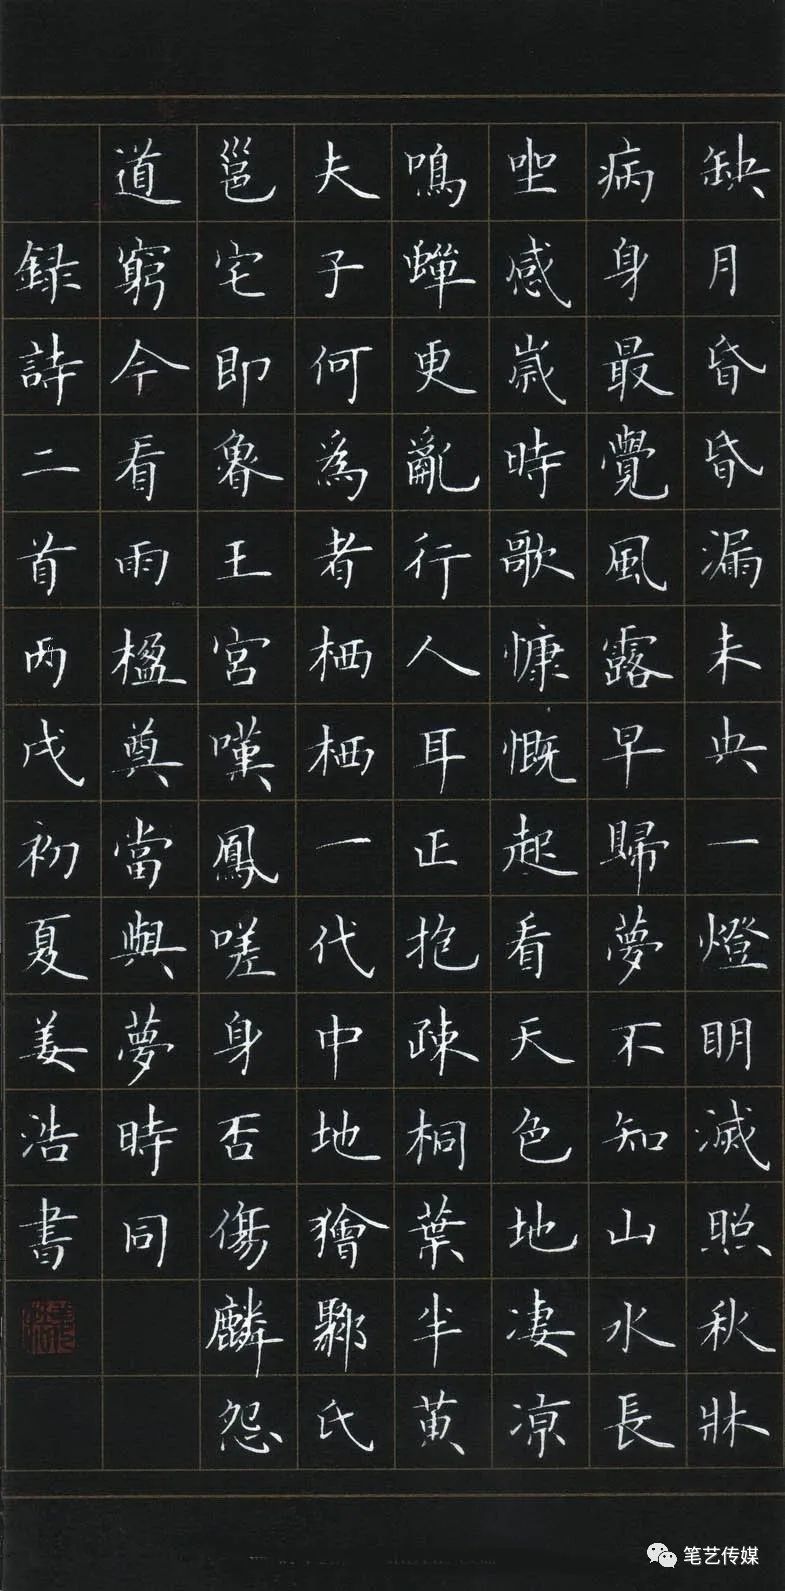 缺月昏昏漏未央一燈明滅照秋牀
病身最覺風露早歸夢不知山水長
坐感歲時歌慷慨起看天色地凄凉
鳴蟬更亂行人耳正抱疎桐葉半黄
夫子何為者栖栖一代中地獪鄹氏
邕宅即魯王宮嘆鳳嗟身否傷麟怨
道窮今看兩楹奠當與夢時同
録詩二首丙戌初夏姜浩書
笔艺传媒